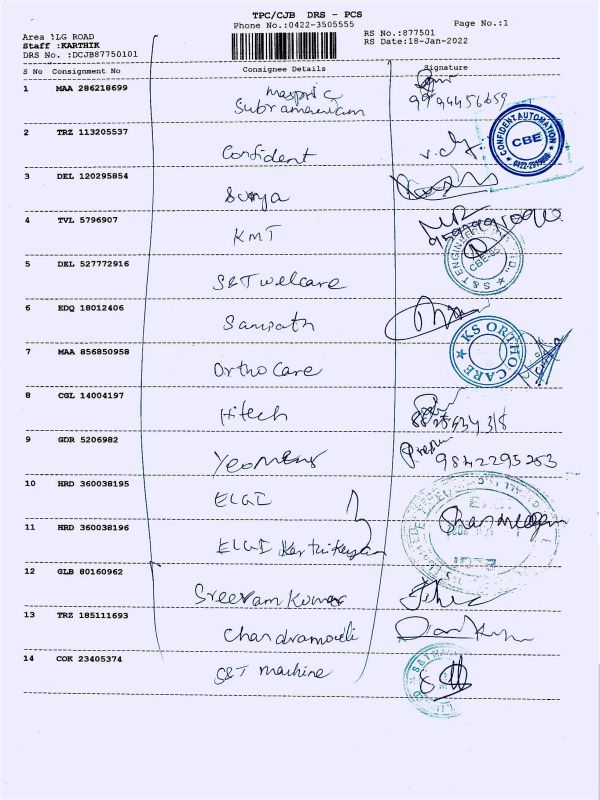 TPC/CJB DRS - PCS
Phone No.:0422-3505555
Page No.:1
Area :LG ROAD
Staff :KARTHIK
DRS No. :DCJB87750101
RS No.:877501
RS Date:18-Jan-2022
S No Consignment No Consignee Details Signature
1 MAA 286218699
Subramanian
2 TRZ 113205537 Confident
CONFIDENT AUTOMATION
CBE
3 DEL 120295854 Surya
4 TVL 5796907 KMT
5 DEL 527772916 S&T welcare
S&T ENGINEE
CBE-
6 EDQ 18012406
7 MAA 856850958 Ortho Care
KS ORTHO CARE
8 CGL 14004197 Hitech
9 GDR 5206982
9842295253
10 HRD 360038195 ELGI
11 HRD 360038196 ELGI Karthikeyan
12 GLB 80160962 Sreeram Kumar
13 TRZ 185111693 Chandramouli
14 COK 23405374 S&T machine